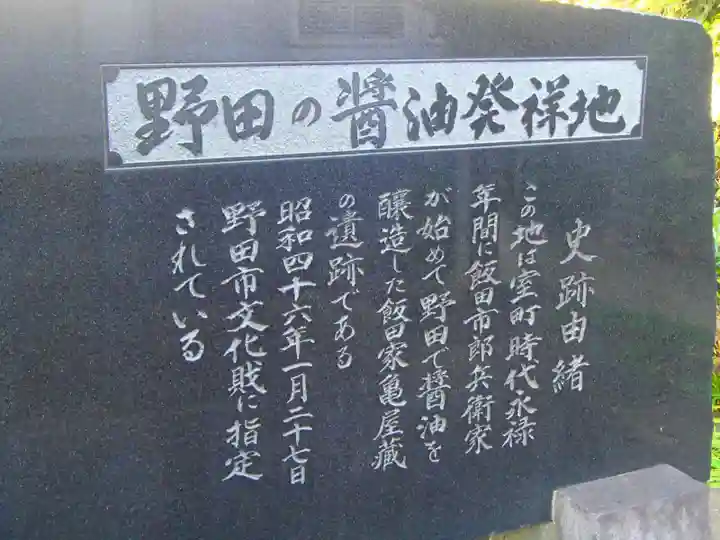 野田の醬油発祥地
史跡由緒
この地は室町時代永禄
年間に飯田市郎兵衛家
が始めて野田で醬油を
醸造した飯田家亀屋蔵
の遺跡である
昭和四十六年一月二十七日
野田市文化財に指定
されている